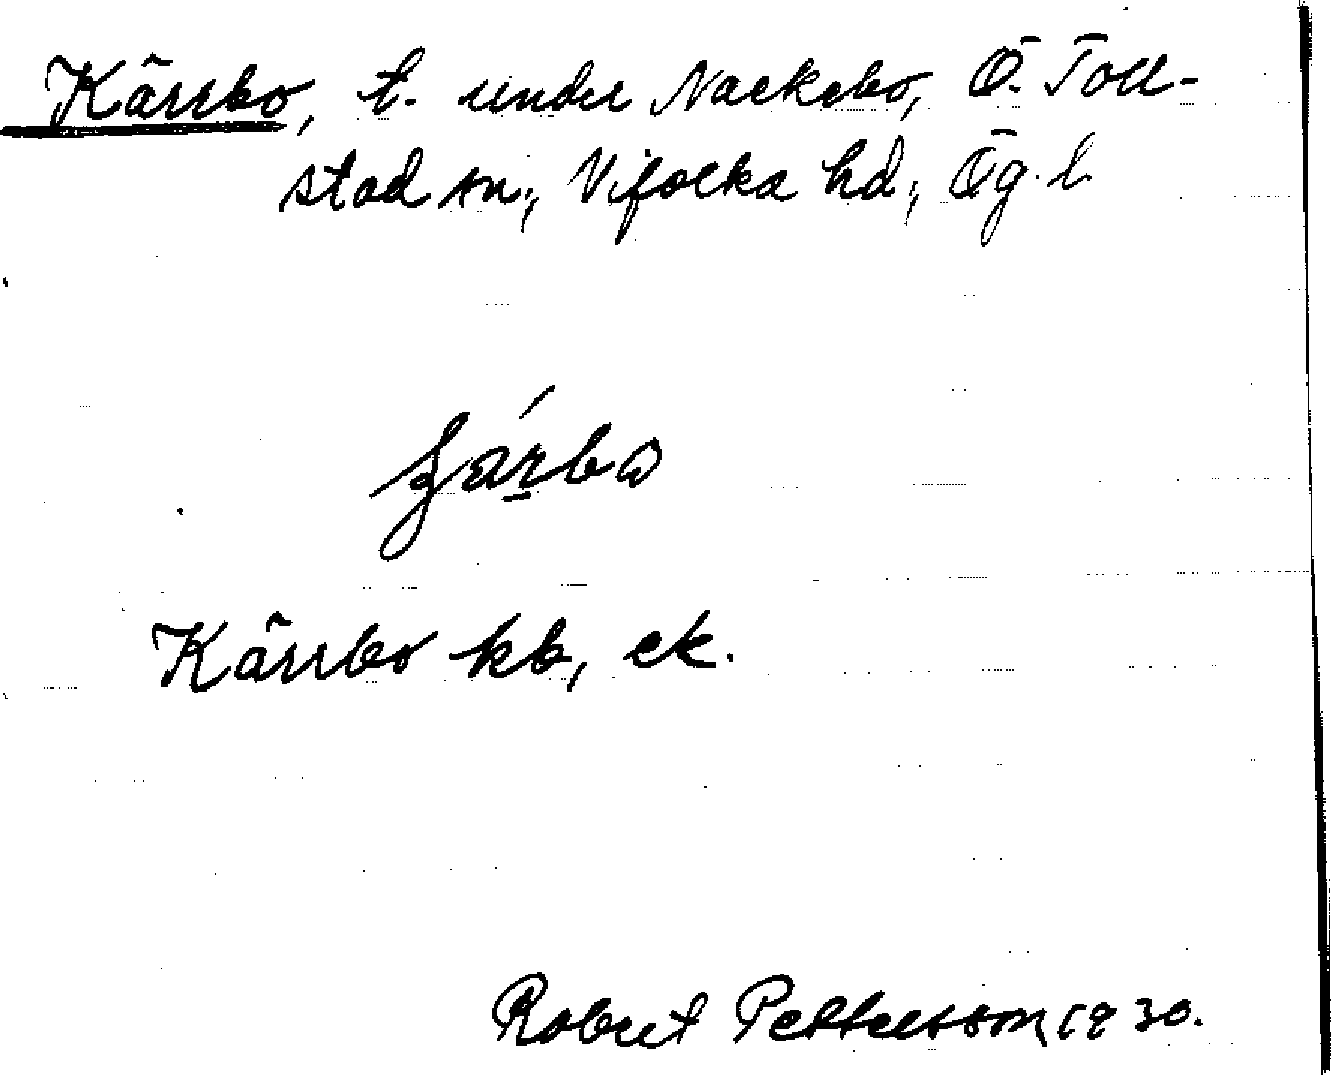 Kärrbo, t. under Nackebo, Ö. Toll-
stad sn., Vifolka hd., Ög. l.
Kärrbo kb, ek.
Robert Pettersson 1930.